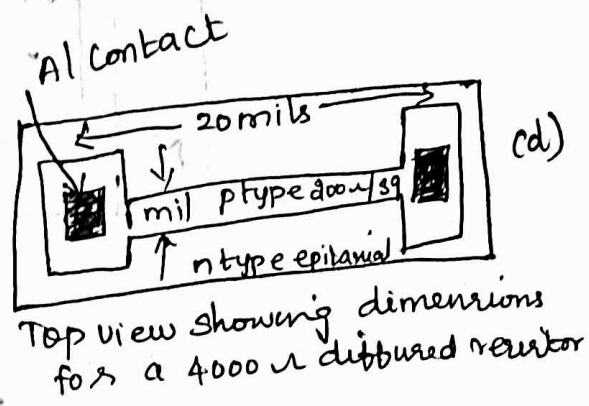 Al Contact
20 mils
(d)
mil ptype 200Ω/sq
n type epitaxial
Top view showing dimensions
for a 4000 Ω diffused resistor